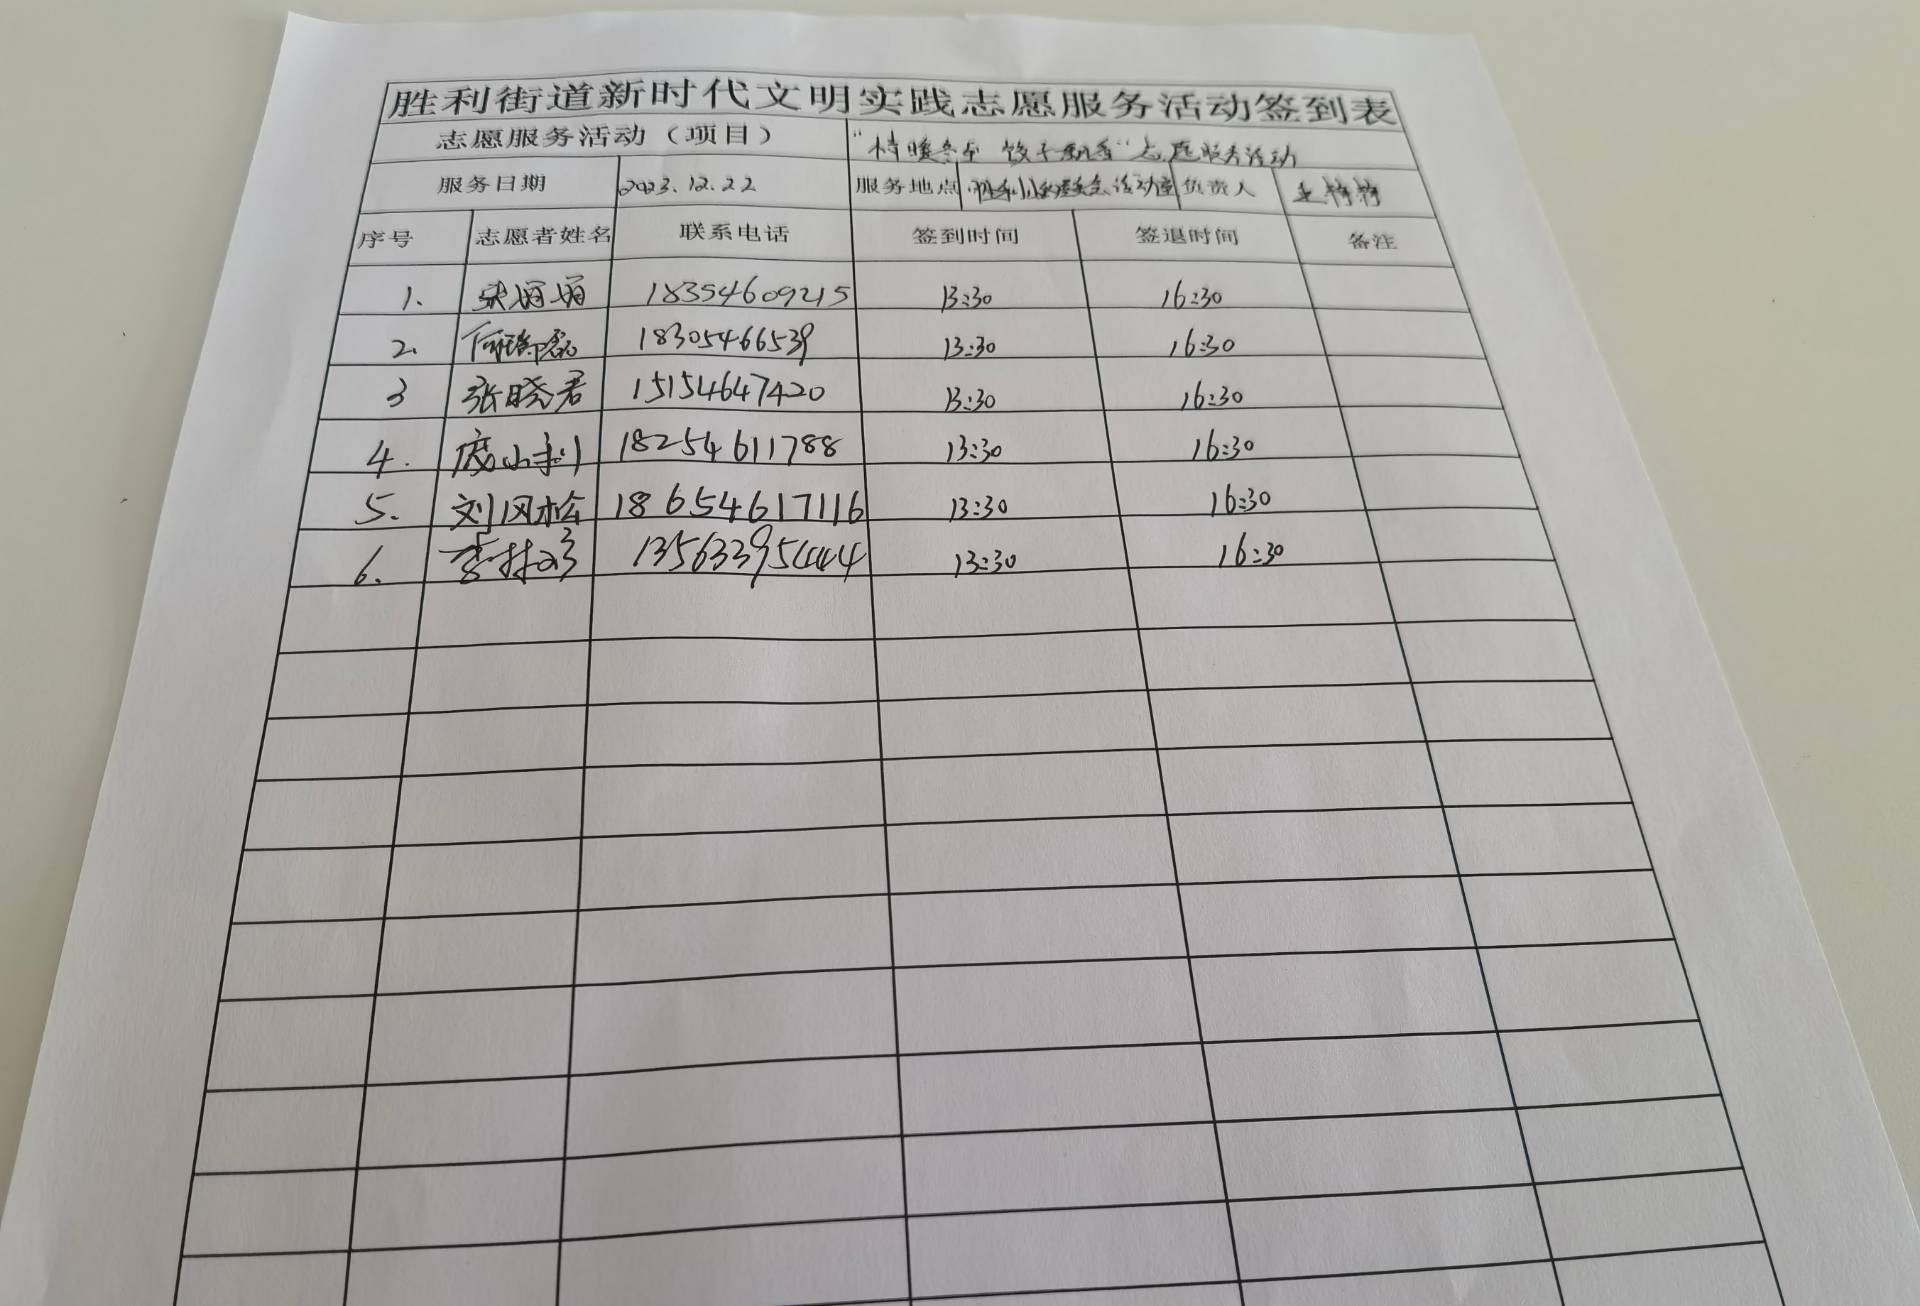 胜利街道新时代文明实践志愿服务活动签到表
志愿服务活动（项目） "情暖冬至 饺子飘香"志愿服务活动
服务日期 2023.12.22 服务地点 活动室 负责人
序号 志愿者姓名 联系电话 签到时间 签退时间 备注
1. 18354609215 13:30 16:30
2. 18305466539 13:30 16:30
3 张晓君 15154647420 13:30 16:30
4. 庞小利 18254611788 13:30 16:30
5. 刘风松 18654617116 13:30 16:30
6. 13563395444 13:30 16:30